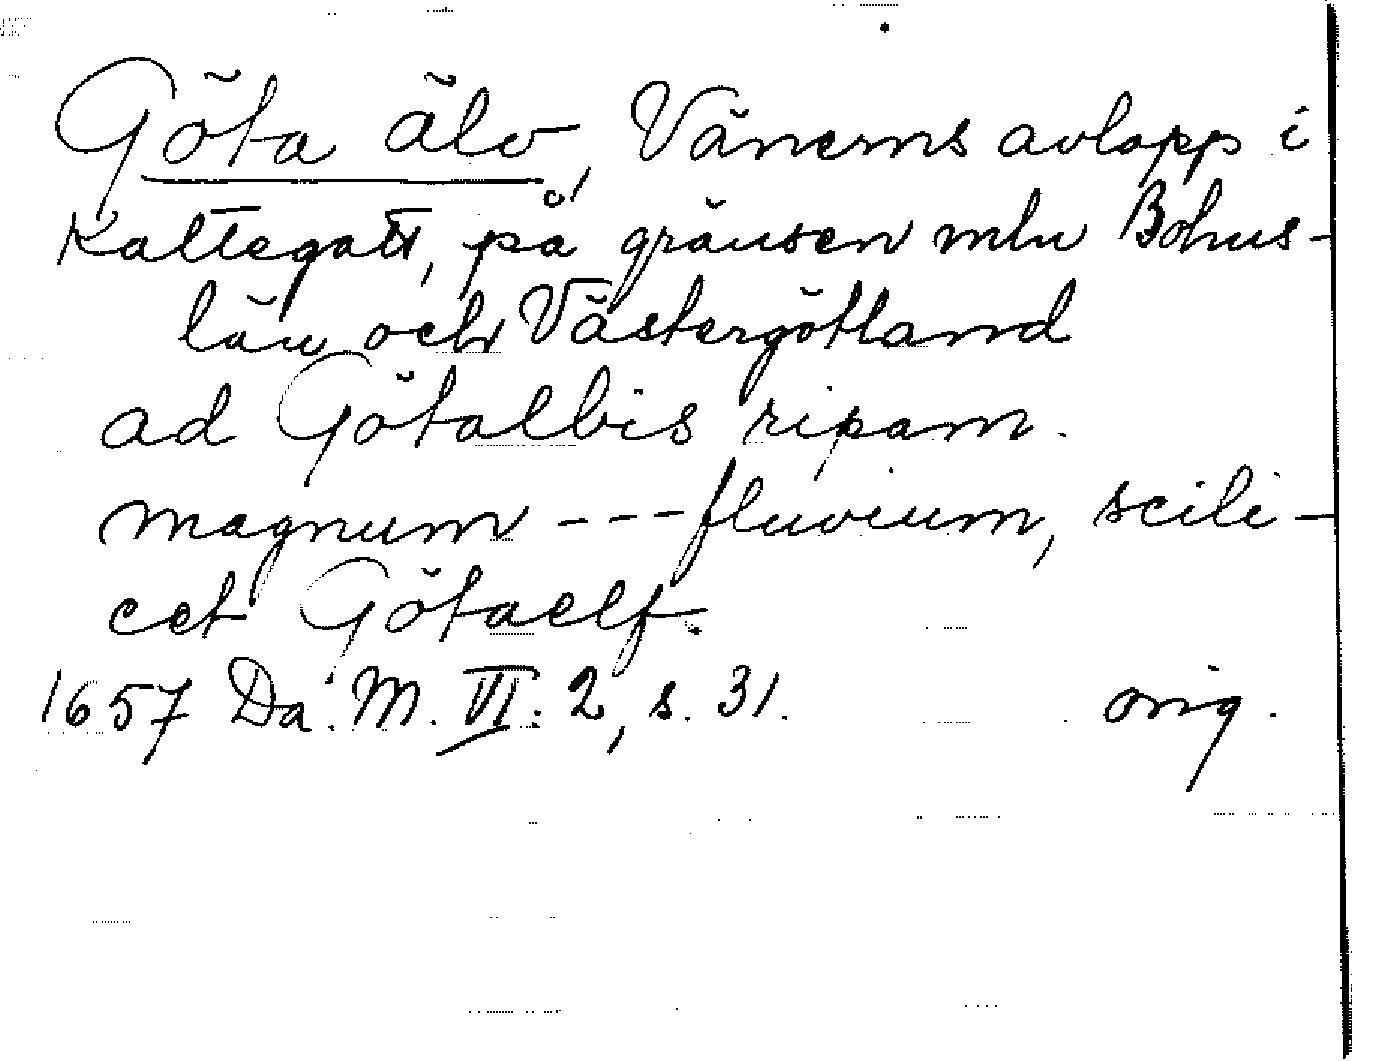 Göta älv, Vänerns avlopp i
Kattegatt, på gränsen mln Bohus-
län och Västergötland
ad Götalbis ripam.
magnum --- fluvium, scili-
cet Götaelf.
1657 Da. M. VI: 2, s. 31. orig.